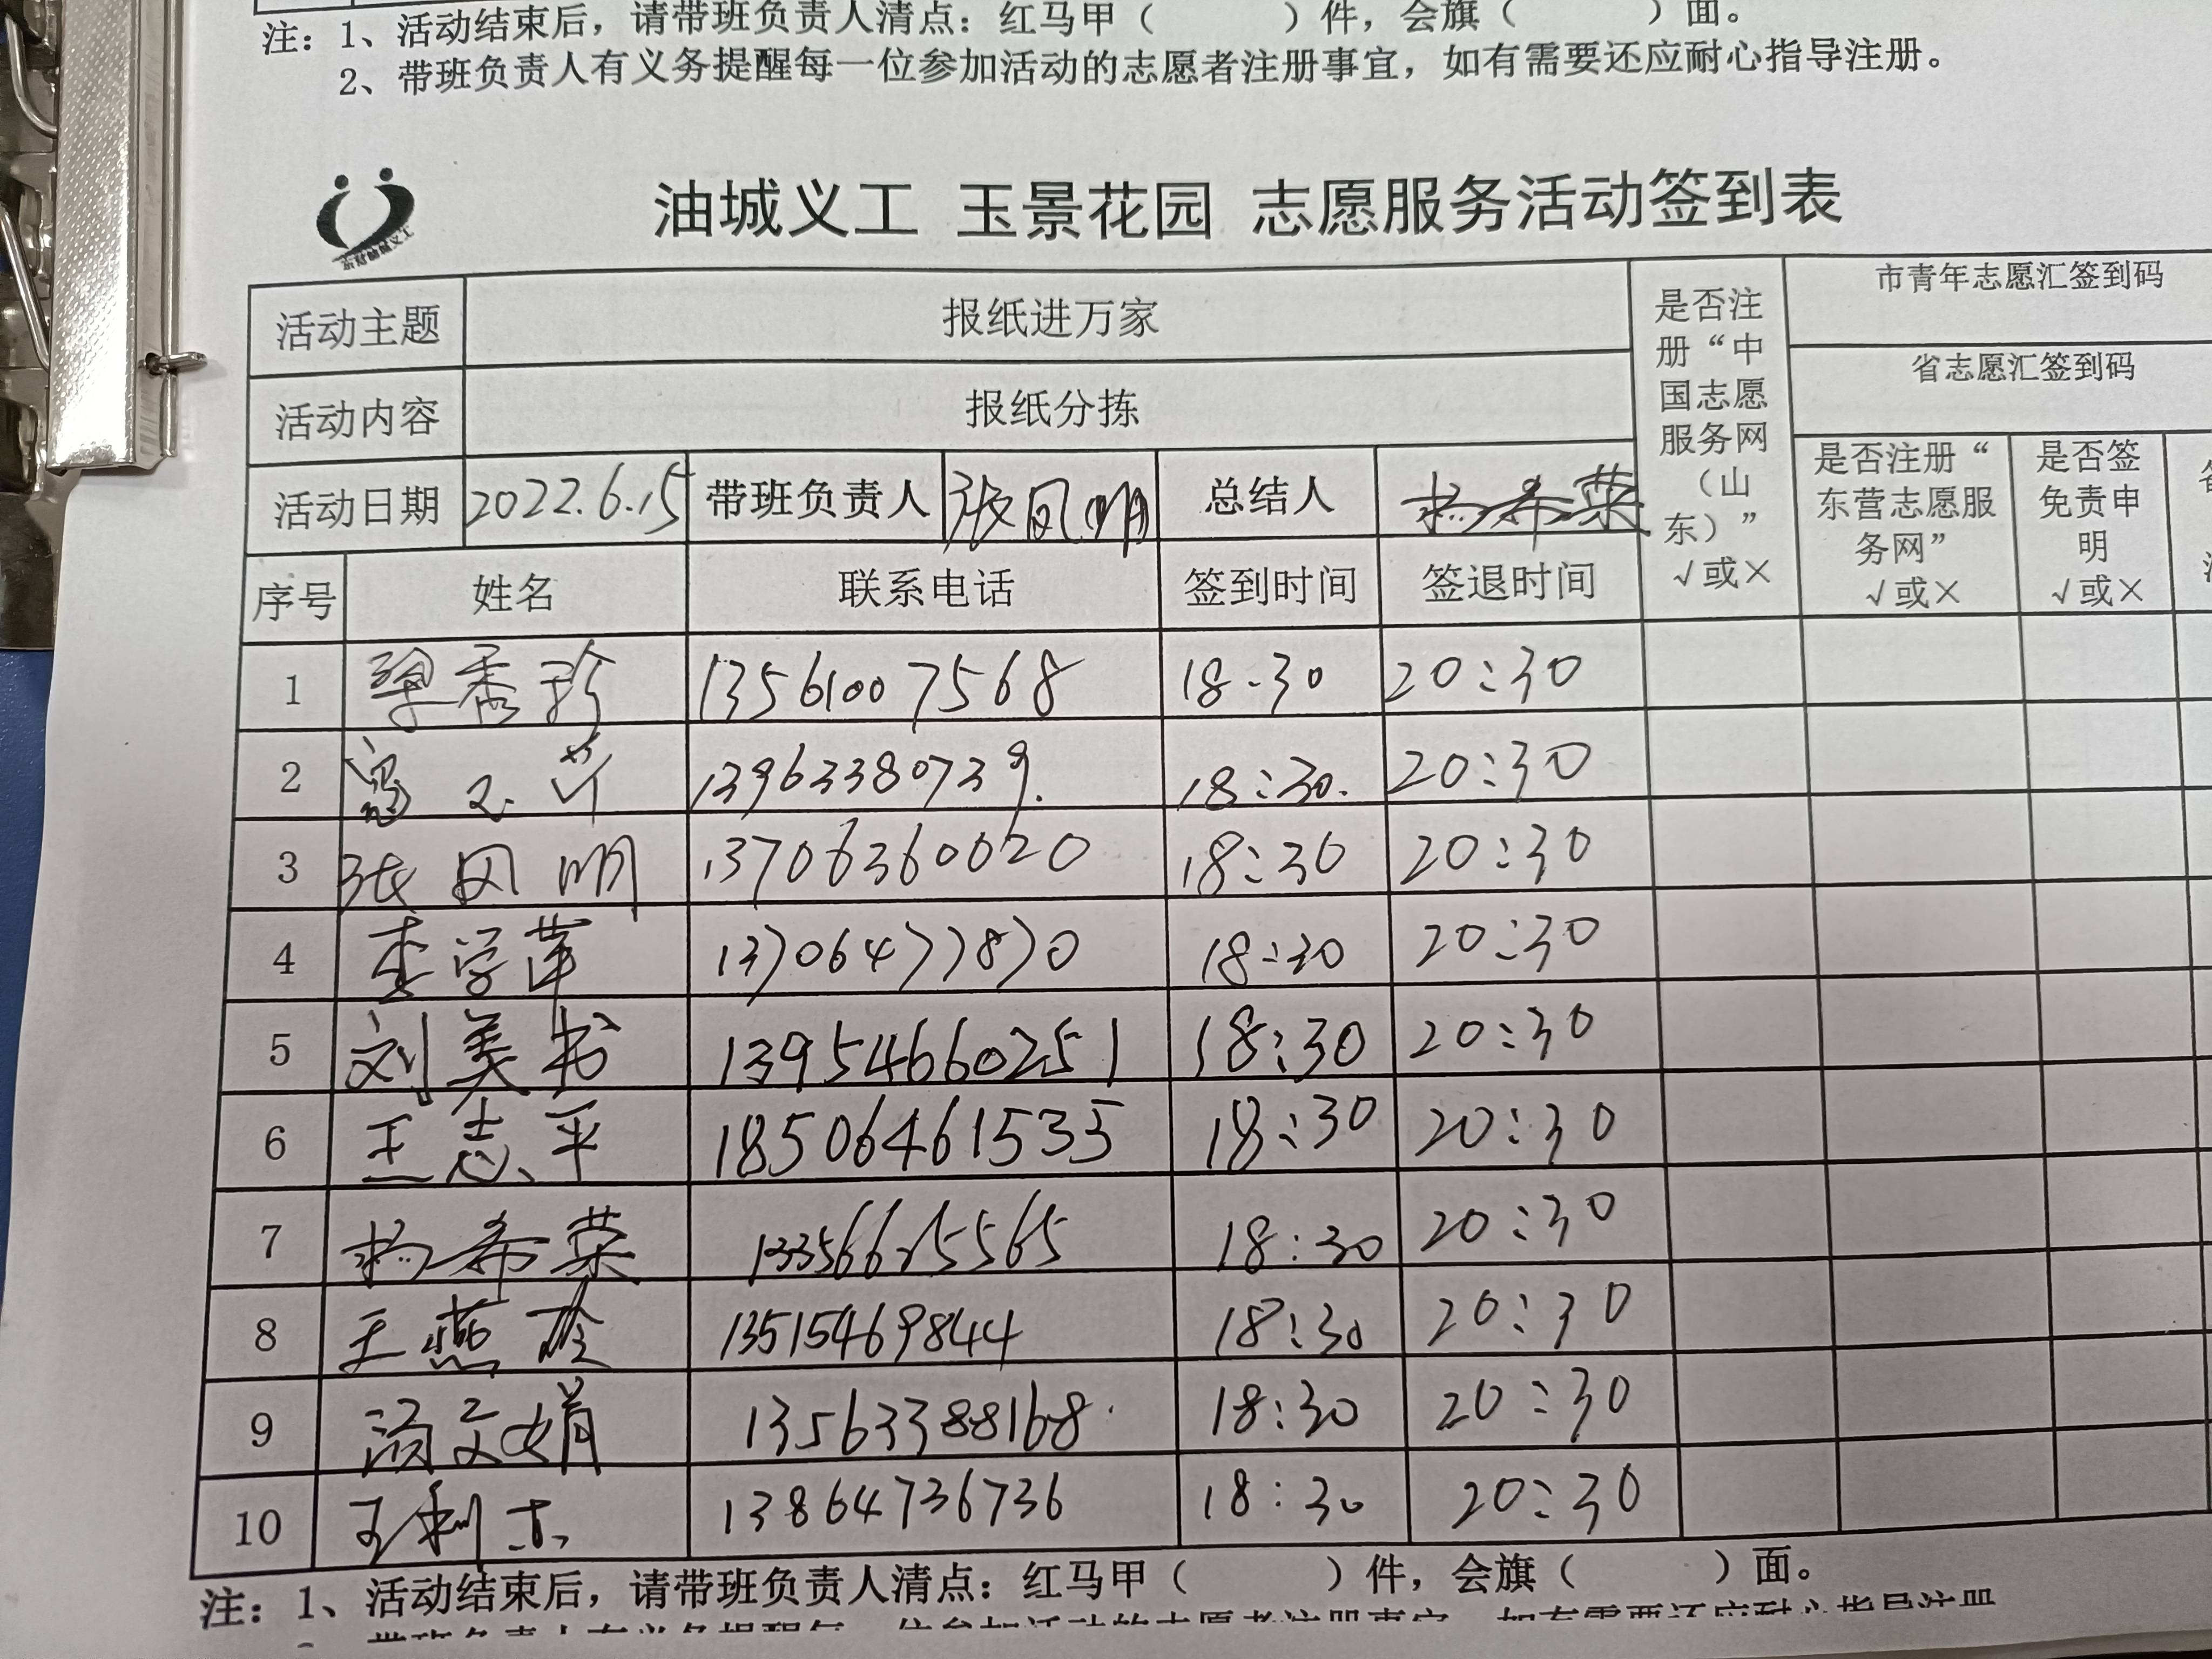 注：1、活动结束后，请带班负责人清点：红马甲（ ）件，会旗（ ）面。
2、带班负责人有义务提醒每一位参加活动的志愿者注册事宜，如有需要还应耐心指导注册。
东营油城义工
油城义工 玉景花园 志愿服务活动签到表
活动主题 报纸进万家 是否注册“中国志愿服务网（山东）” √或× 市青年志愿汇签到码
省志愿汇签到码
活动内容 报纸分拣
活动日期 2022.6.15 带班负责人 张凤明 总结人 杨希荣 是否注册“东营志愿服务网” √或× 是否签免责申明 √或×
序号 姓名 联系电话 签到时间 签退时间
1 秀珍 13561007568 18:30 20:30
2 13963380739. 18:30. 20:30
3 张凤明 13706360020 18:30 20:30
4 李学莲 13706477870 18:30 20:30
5 刘美书 13954660251 18:30 20:30
6 王志平 18506461535 18:30 20:30
7 杨希荣 13356615565 18:30 20:30
8 王燕玲 13515469844 18:30 20:30
9 文娟 13563388168 18:30 20:30
10 王利 13864736736 18:30 20:30
注：1、活动结束后，请带班负责人清点：红马甲（ ）件，会旗（ ）面。